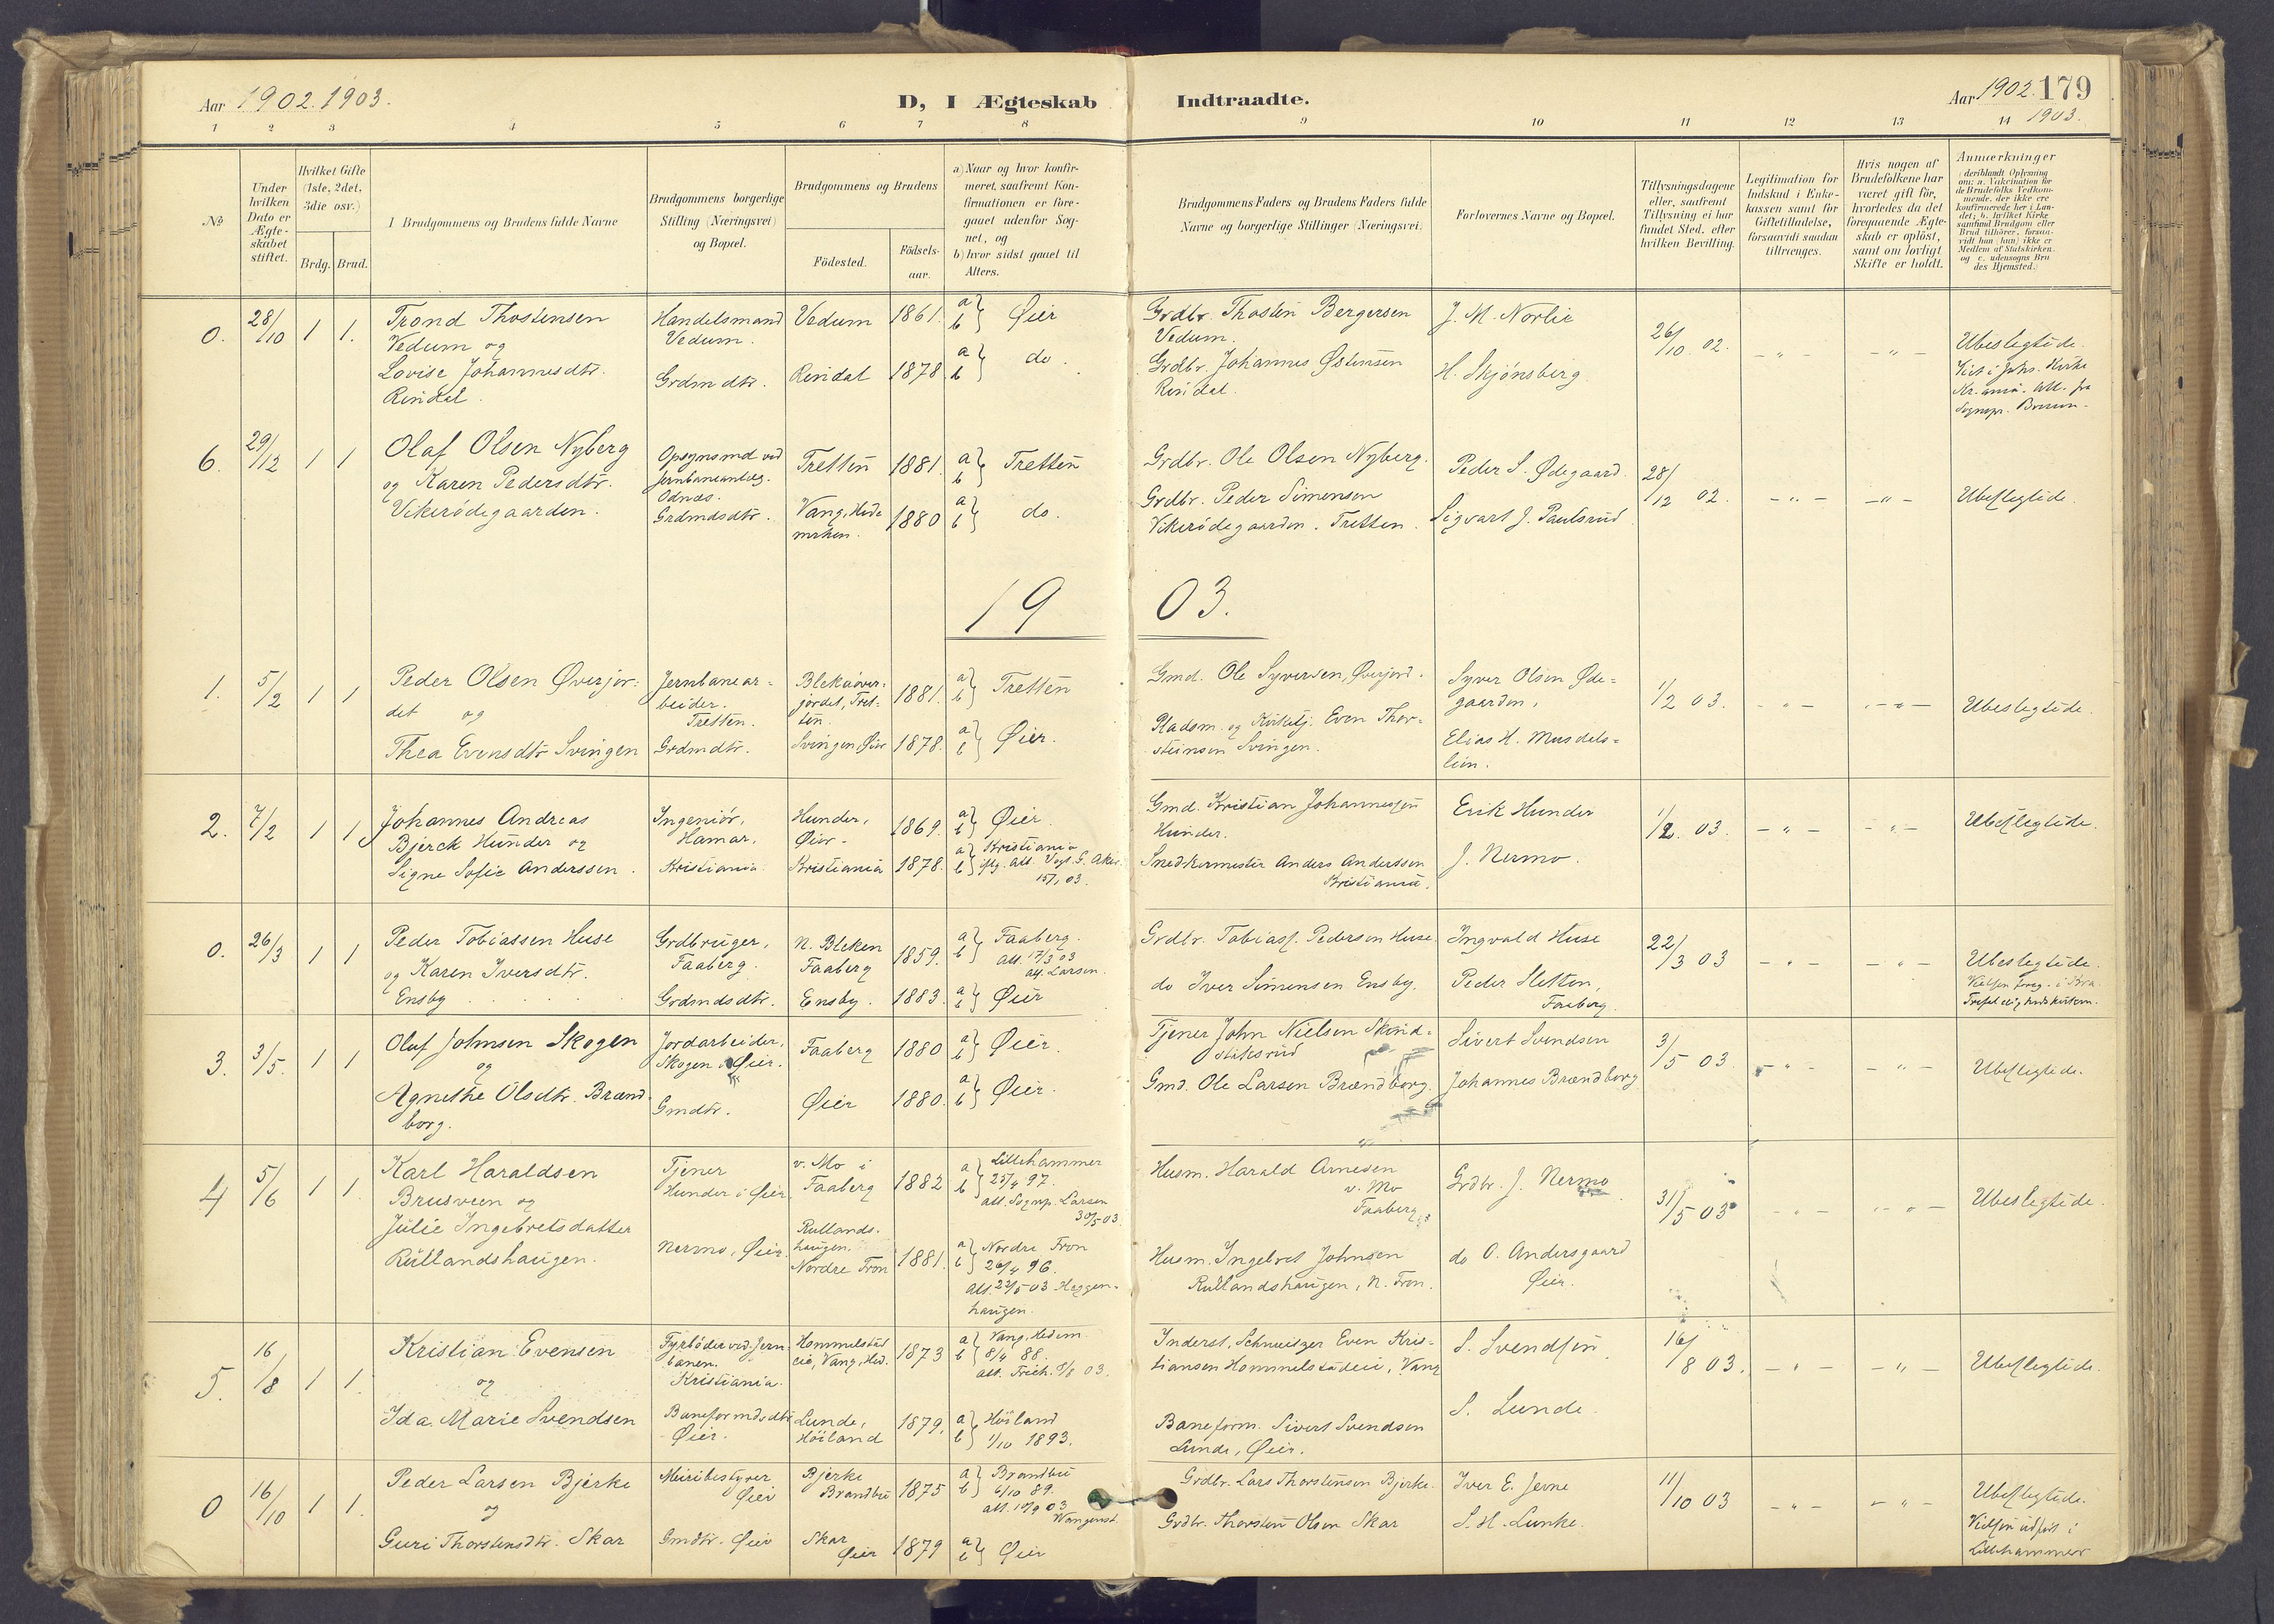 Aar 1902.1903.
D, I Ægteskab Indtraadte.
Aar 1902. 179
1903.
1 2 3 4 5 6 7 8 9 10 11 12 13 14
№
Under hvilken Dato er Ægte-skabet stiftet.
Hvilket Gifte (1ste, 2det, 3die osv.)
Brdg. Brud.
I Brudgommens og Brudens fulde Navne
Brudgommens borgerlige Stilling (Næringsvei) og Bopæl.
Brudgommens og Brudens
Födested.
Födsels-aar.
a) Naar og hvor konfir-meret, saafremt Kon-firmationen er fore-gaaet udenfor Sog-net, og
b) hvor sidst gaaet til Alters.
Brudgommens Faders og Brudens Faders fulde Navne og borgerlige Stillinger (Næringsvei)
Forlovernes Navne og Bopæl.
Tillysningsdagene eller, saafremt Tillysning ei har fundet Sted, efter hvilken Bevilling.
Legitimation for Indskud i Enke-kassen samt for Giftetilladelse, forsaavidt saadan tiltrænges.
Hvis nogen af Brudefolkene har været gift før, hvorledes da det foregaaende Ægte-skab er oplöst, samt om lovligt Skifte er holdt.
Anmærkninger
(deriblandt Oplysning om: a. Vakcination for de Brudefolks Vedkom-mende, der ikke ere konfirmerede her i Lan-det; b. hvilket Kirke-samfund Brudgom eller Brud tilhører, forsaa-vidt han (hun) ikke er Medlem af Statskirken, og c. udensogns Bru-des Hjemsted.)
0. 28/10 1 1.
Trond Thostensen
Vedum og
Lovise Johannesdtr.
Rindal.
Handelsmand
Vedum.
Grdmdtr.
Vedum 1861. a b } Øier
Rindal 1878. a b } do.
Grdbr. Thosten Bergersen
Vedum.
Grdbr. Johannes Østensen
Rindal.
J. M. Norlie
H. Skjønsberg
26/10 02. - " - - " -
Ubeslegtede.
Viet i Johs. Kirke
6. 29/12 1 1
Olaf Olsen Nyberg
og Karen Pedersdtr.
Vikerødegaarden.
Opsynsmd ved
Jernbaneanlæg.
Odnæs.
Grdmdsdtr.
Tretten 1881. a b } Tretten
Vang, Hede
marken. 1880 a b } do.
Grdbr. Ole Olsen Nyberg.
Grdbr. Peder Simensen
Vikerødegaarden. Tretten.
Peder S. Ødegaard.
Sigvart J. Paulsrud
28/12 02. - " - - " -
Ubeslegtede.
1903.
1. 5/2 1 1
Peder Olsen Øverjor-
det og
Thea Evensdtr Svingen
Jernbanear-
beider.
Tretten.
Grdmdtr.
Blekaøver-
jordet, Tret-
ten. 1881. a b } Tretten
Svingen, Øier 1878. a b } Øier.
Gmd. Ole Syversen, Øverjord.
Pladsm. og Kirketj. Even Thor-
steinsen Svingen.
Syver Olsen Øde-
gaarden,
Elias H. Musdels-
lien.
1/2 03. - " - - " -
Ubeslegtede.
2. 7/2 1 1
Johannes Andreas
Bjerck Hunder og
Signe Sofie Anderssen.
Ingeniör,
Hamar.
Kristiania
Hunder,
Øier. 1869. a b } Øier.
Kristiania 1878. a b } Kristiania
15/1 03.
Gmd. Kristian Johannesen
Hunder.
Snedkermester Anders Anderssen
Kristiania.
Erik Hunder
J. Nermo.
1/2. 03. - " - - " -
Ubeslegtede.
0. 26/3 1 1
Peder Tobiassen Huse
og Karen Iversdtr.
Ensby
Grdbruger,
Faaberg.
Grdmdsdtr.
N. Bleken
Faaberg 1859. a b } Faaberg.
Att. 17/3 03
Larsen.
Ensby. 1883. a b } Øier
Grdbr. Tobias Pedersen Huse.
do Iver Simensen Ensby.
Ingvald Huse
Peder Sletten,
Faaberg.
22/3 03 - " - - " -
Ubeslegtede.
3. 3/5. 1 1
Oluf Johnsen Skogen
og
Agnethe Olsdtr. Brænd-
borg.
Jordarbeider,
Skogen Øier.
Gmdtr.
Faaberg 1880 a b } Øier.
Øier 1880. a b } Øier.
Tjener John Nielsen
Gmd. Ole Larsen Brændborg.
Sivert Svendsen
Johannes Brændborg
3/5 03 - " - - " -
Ubeslegtede.
4 5/6 1 1
Karl Haraldsen
Brusveen og
Julie Ingebretsdatter
Rullandshaugen.
Tjener
Hunder i Øier
Nermo, Øier.
v. Mo i
Faaberg 1882 a b } Lillehammer
25/4 97.
att. Sognep. Larsen
30/5 03.
Rullands-
haugen.
Nordre Fron 1881. a b } Nordre Fron
26/4 96.
Att. 23/5 03 Heggen-
haugen.
Husm. Harald Arnesen
v. Mo
Faaberg
Husm. Ingebret Johnsen
Rullandshaugen, N. Fron.
Grdbr. J. Nermo
do O. Andersgaard
Øier.
31/5 03 - " - - " -
Ubeslegtede.
5. 16/8 1 1.
Kristian Evensen
og
Ida Marie Svendsen
Fyrböder ved Jern-
banen.
Kristiania.
Baneformdsdtr
Øier.
Hommelstad
eie, Vang, Hed. 1873 a b } Vang, Hedem.
8/4 88.
Lunde,
Höiland 1879. a b } Höiland
1/10 1893.
Inderst, Schweizer Even Kris-
tiansen Hommelstadeie, Vang
Baneform. Sivert Svendsen
Lunde, Øier.
S. Svendsen
S. Lunde.
16/8 03. - " - - " -
Ubeslegtede.
0 16/10 1 1.
Peder Larsen Bjerke
og
Guri Thorstensdtr. Skar
Meieribestyrer
Øier
Gmdtr. Øier
Bjerke
Brandbu 1875 a b } Brandbu
6/10 89.
Skar
Øier 1879 a b } Øier
Grdbr. Lars Thorstensen Bjerke.
Grdbr. Thorsten Olsen Skar
Iver E. Jevne
S. H. Lunke.
11/10 03 - " - - " -
Ubeslegtede.
Vielsen udført i
Lillehammer